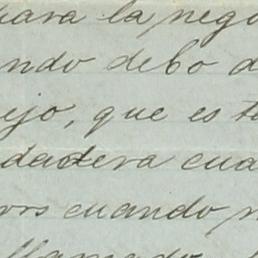 para la nego
ndo debo d
ejo, que es t
dadera cua
ors cuando n
llamado